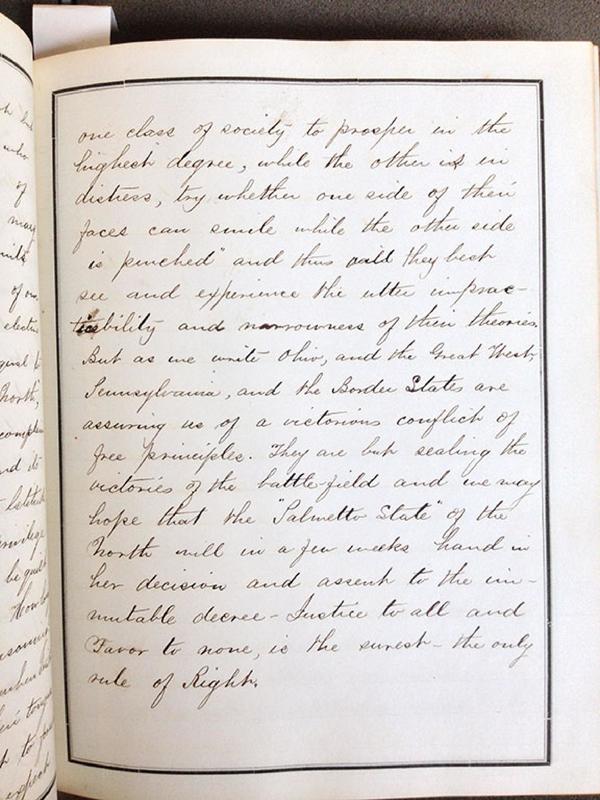 one class of society to prosper in the
highest degree, while the other is in
distress, try whether one side of their
faces can smile while the other side
is pinched" and thus will they best
see and experience the utter imprac-
ticability and narrowness of their theories.
But as we write Ohio, and the Great West,
Pennsylvania, and the Border States are
assuring us of a victorious conflict of
free principles. They are but sealing the
victories of the battle-field and we may
hope that the "Palmetto State" of the
North will in a few weeks hand in
her decision and assent to the im-
mutable decree - Justice to all and
Favor to none, is the surest - the only
rule of Right.
of
many
of our
electi
North,
and it
privilege